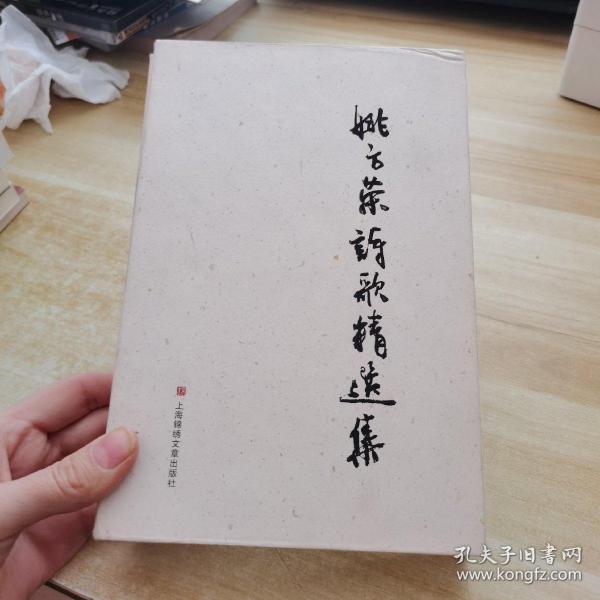 姚方荣詩歌精选集
上海锦绣文章出版社
孔夫子旧书网
www.kongfz.com